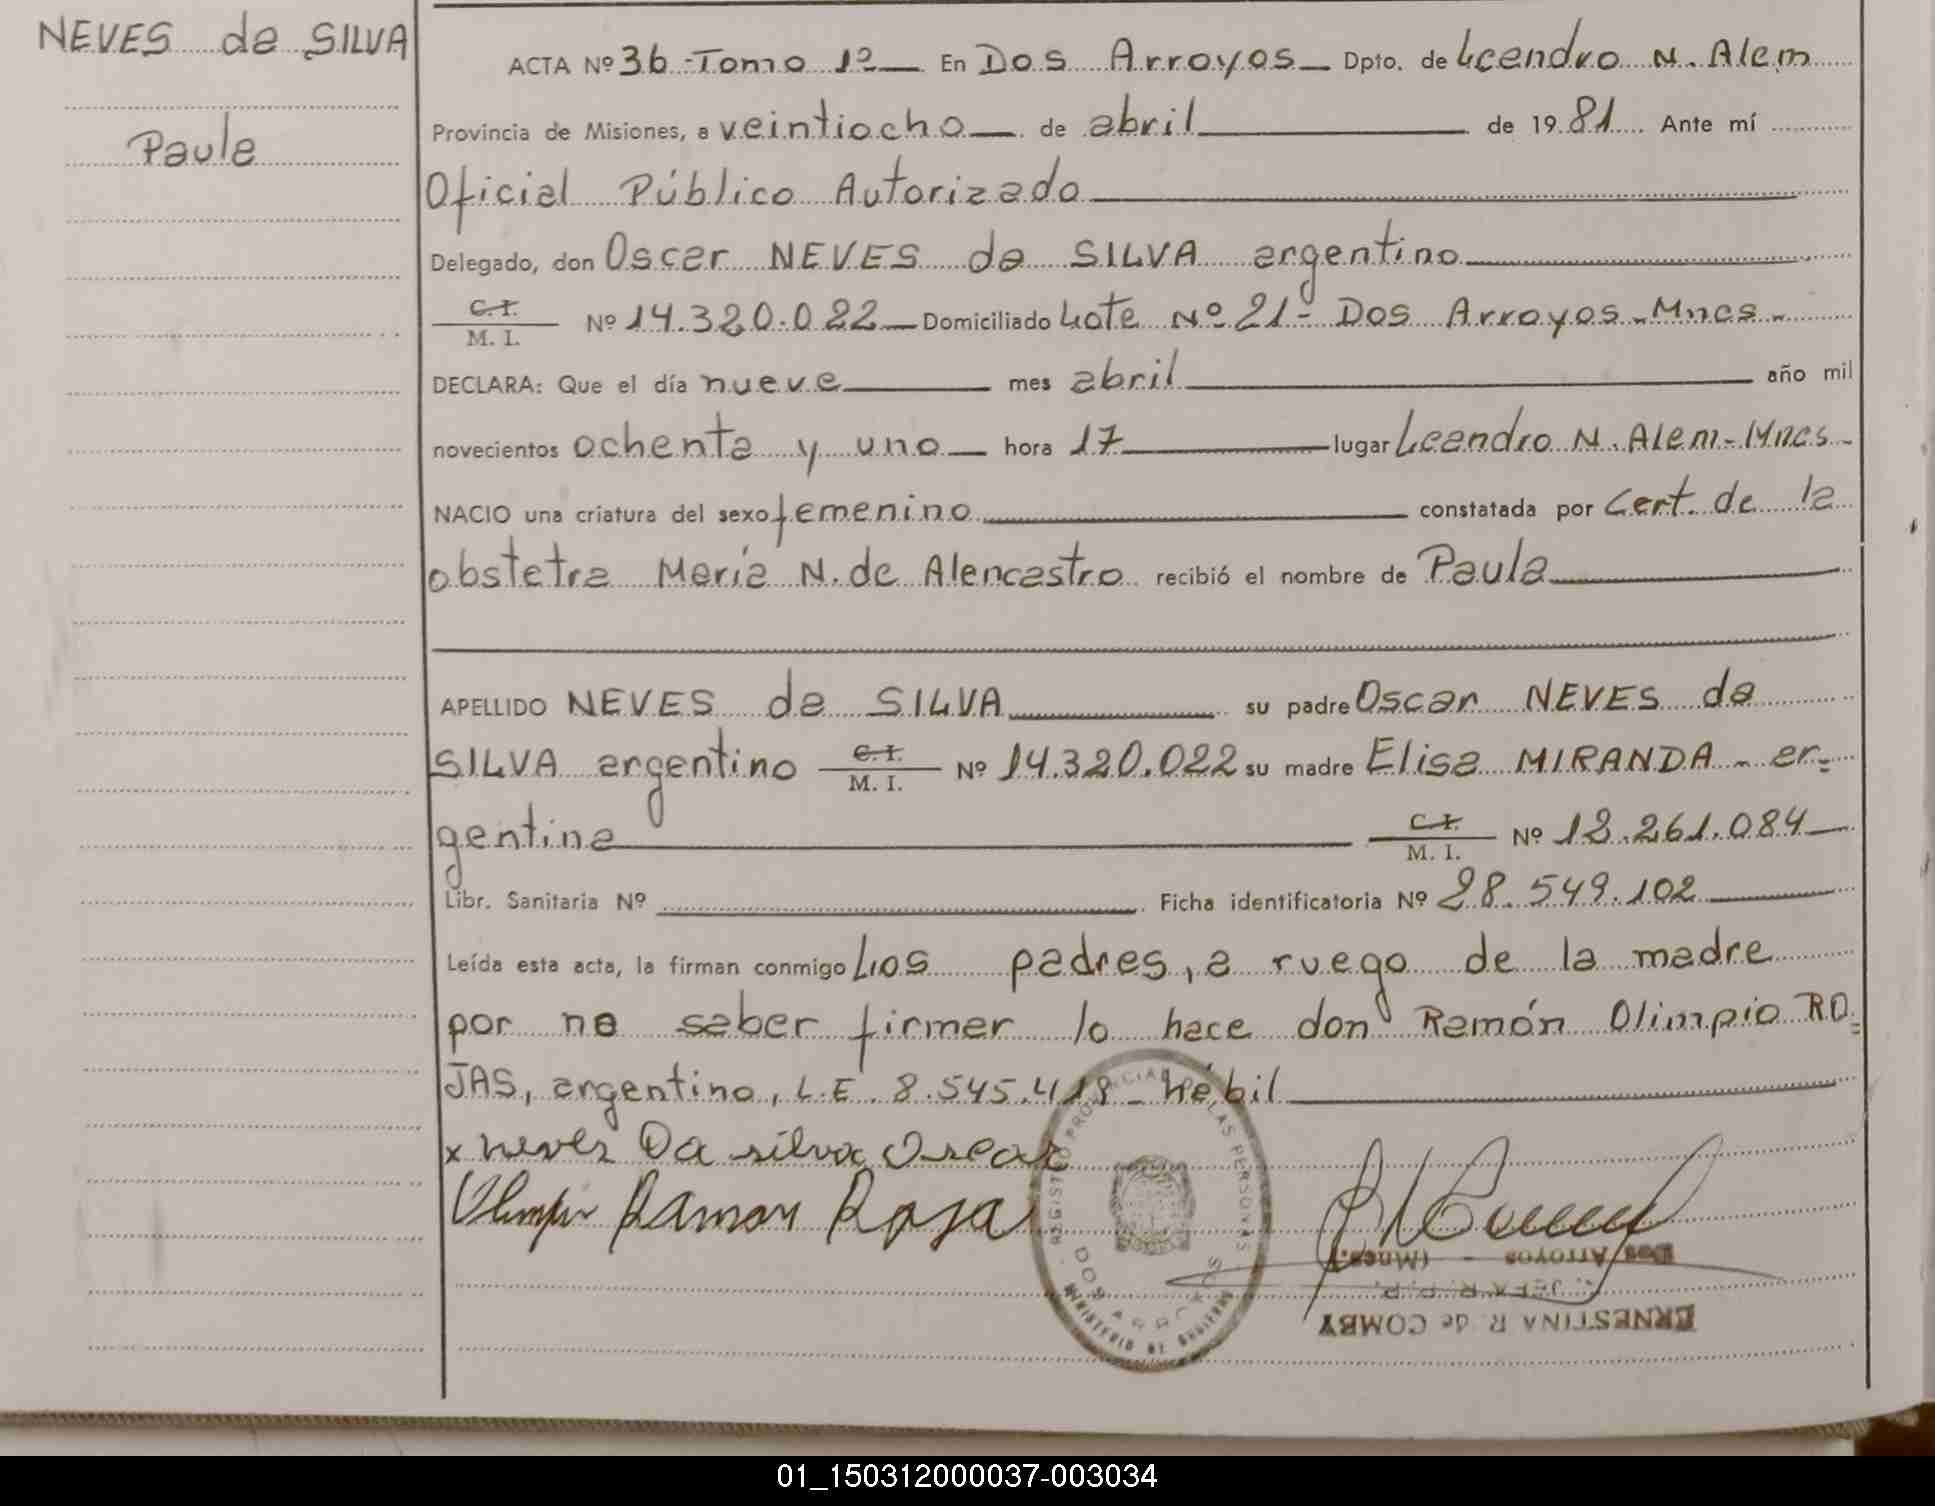 NEVES da SILVA
Paula
ACTA Nº 36 - Tomo 1º En Dos Arroyos Dpto. de Leandro N. Alem
Provincia de Misiones, a veintiocho de abril de 1981 Ante mí
Oficial Público Autorizado
Delegado, don Oscar NEVES da SILVA argentino
C.I.
M. I. Nº 14.320.022 Domiciliado Lote Nº 21 - Dos Arroyos - Mnes -
DECLARA: Que el día nueve mes abril año mil
novecientos ochenta y uno hora 17 lugar Leandro N. Alem - Mnes -
NACIO una criatura del sexo femenino constatada por Cert. de la
obstetra María N. de Alencastro recibió el nombre de Paula
APELLIDO NEVES da SILVA su padre Oscar NEVES da
SILVA argentino C.I. M. I. Nº 14.320.022 su madre Elisa MIRANDA - ar-
gentina C.I. M. I. Nº 12.261.084
Libr. Sanitaria Nº Ficha identificatoria Nº 28.549.102
Leída esta acta, la firman conmigo Los padres, a ruego de la madre
por no saber firmar lo hace don Ramón Olimpio RO=
JAS, argentino, L.E. 8.545.418 - hábil
x neves Da silva Oscar
Olimpio Ramon Roja
REGISTRO PROVINCIAL DE LAS PERSONAS
DOS ARROYOS
MINISTERIO DE GOBIERNO
Dos Arroyos - (Mnes.)
JEFA R. P. P.
ERNESTINA R. de COMBY
01_150312000037-003034